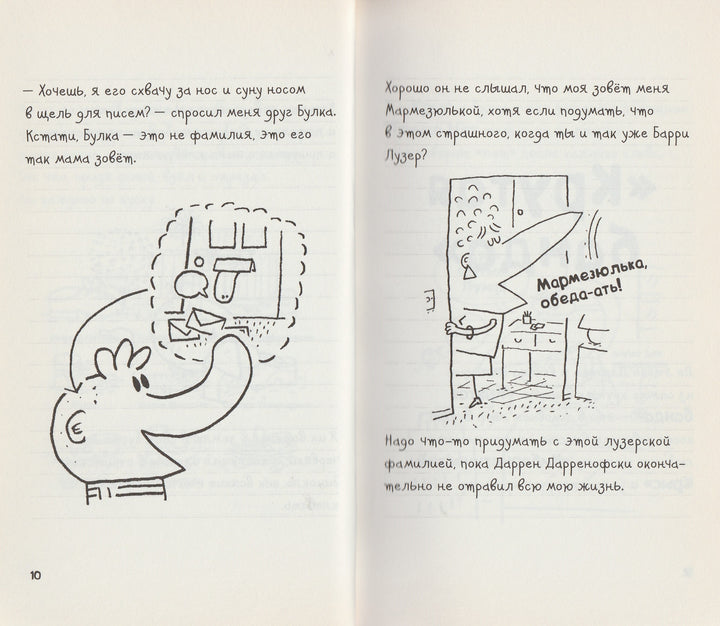 — Хочешь, я его схвачу за нос и суну носом
в щель для писем? — спросил меня друг Булка.
Кстати, Булка — это не фамилия, это его
так мама зовёт.
10
Хорошо он не слышал, что моя зовёт меня
Мармезюлькой, хотя если подумать, что
в этом страшного, когда ты и так уже Барри
Лузер?
Мармезюлька,
обеда-ать!
Надо что-то придумать с этой лузерской
фамилией, пока Даррен Дарренофски оконча-
тельно не отравил всю мою жизнь.